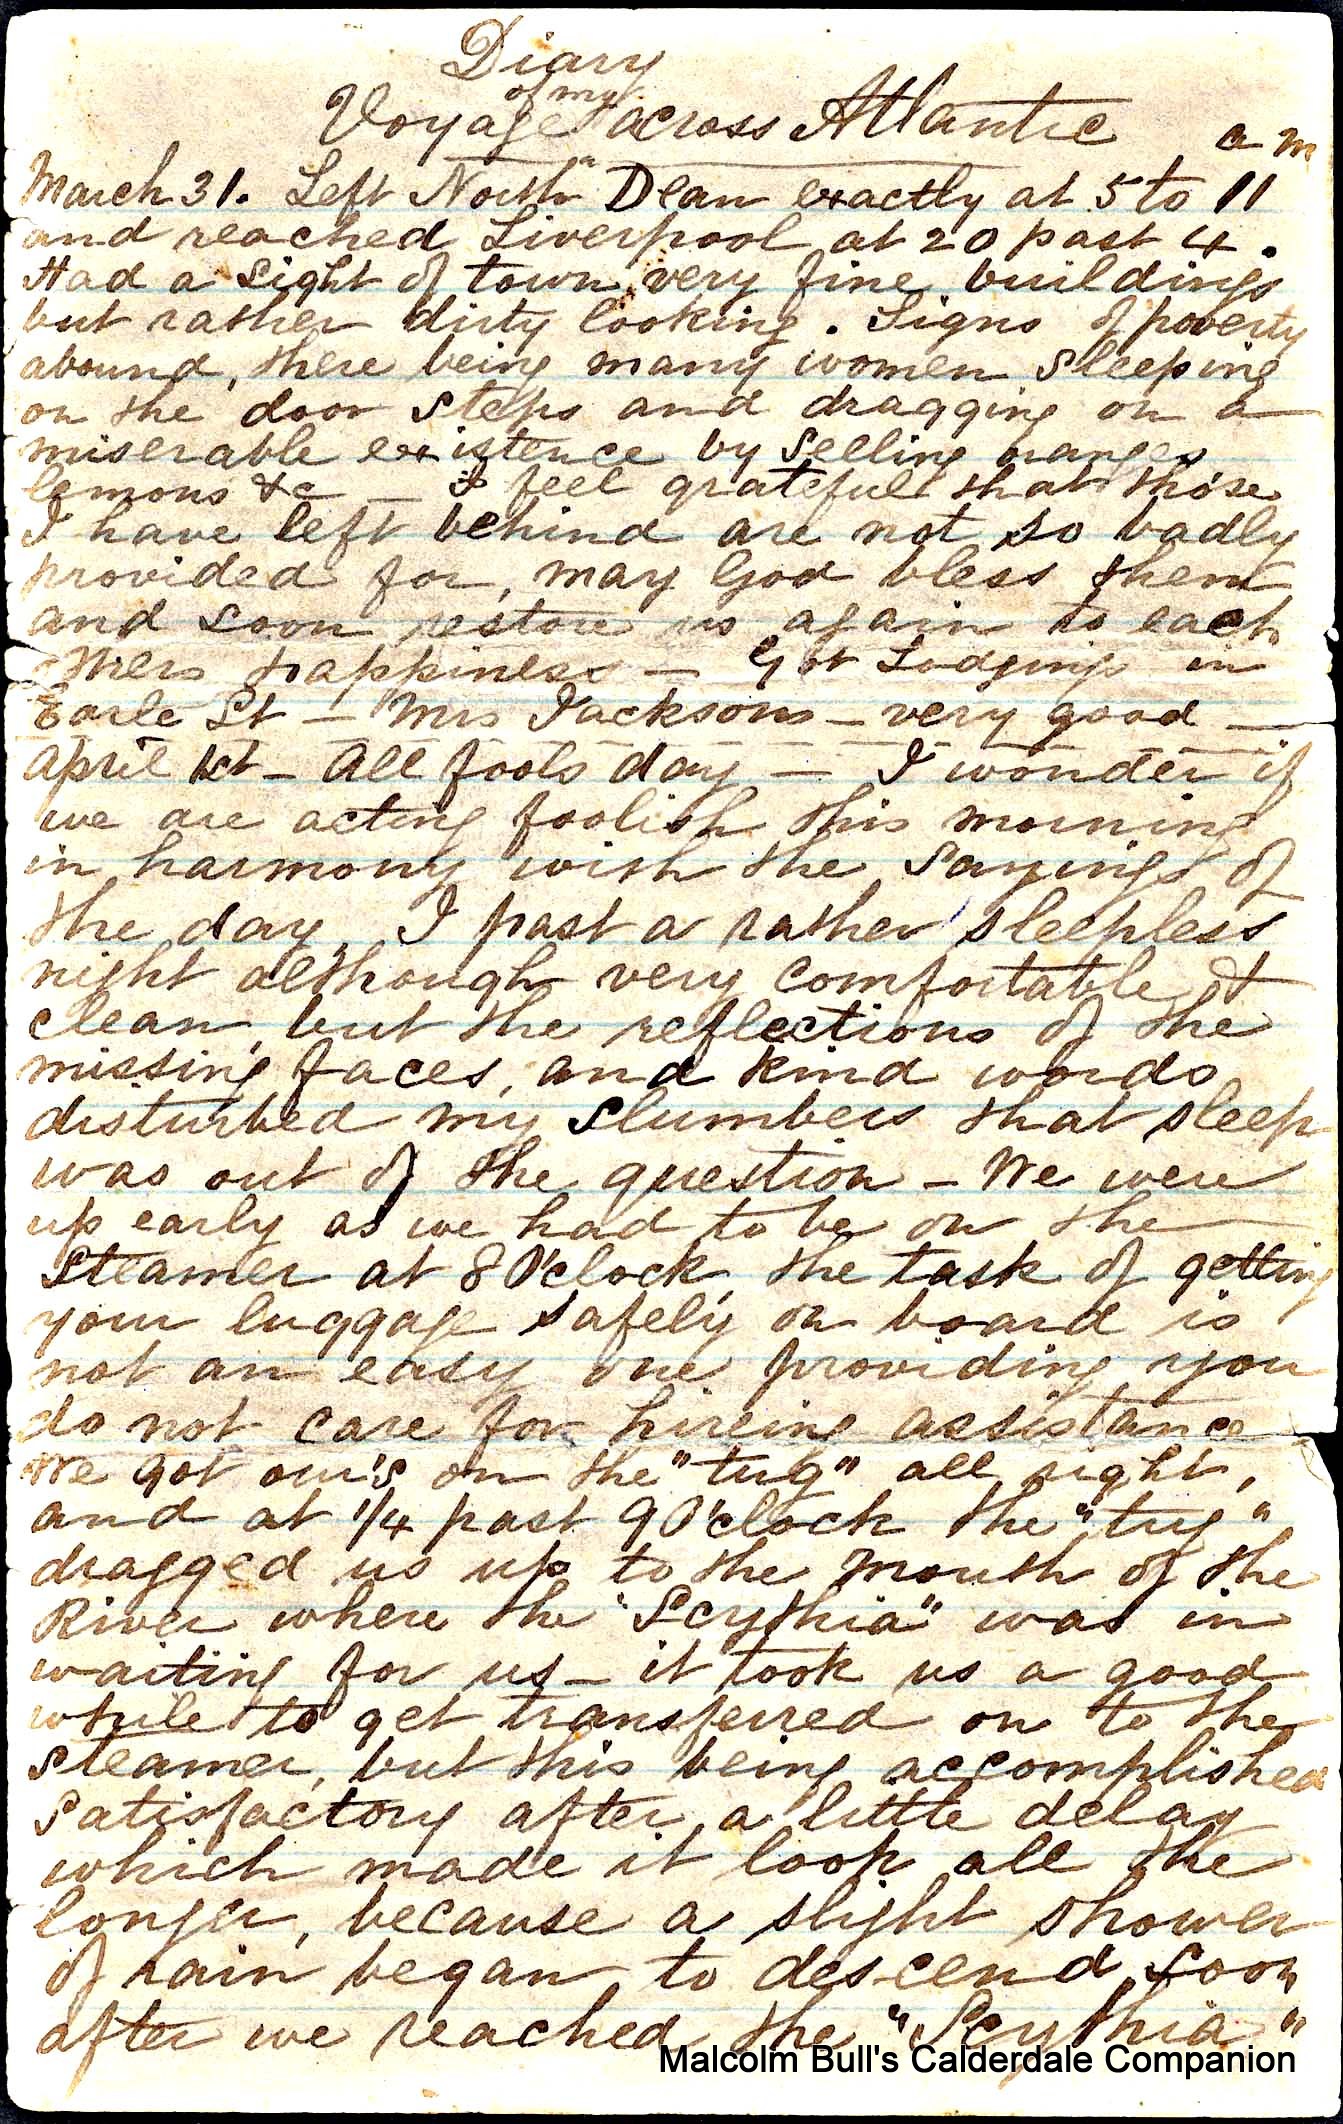 Diary
of my
Voyage across Atlantic
a m
March 31. Left North Dean exactly at 5 to 11
and reached Liverpool at 20 past 4.
Had a sight of town, very fine buildings
but rather dirty looking. Signs of poverty
abound, there being many women sleeping
on the door steps and dragging on a
miserable existence by selling oranges
lemons &c — I feel grateful that those
I have left behind are not so badly
provided for, may God bless them
and soon restore us again to each
others happiness — Got Lodgings in
Earle St — Mrs Jacksons — very good —
April 1st — All fools day — I wonder if
we are acting foolish this morning
in harmony with the sayings of
the day. I past a rather sleepless
night although very comfortable &
clean, but the reflections of the
missing faces, and kind words
disturbed my slumbers that sleep
was out of the question — We were
up early as we had to be on the
steamer at 8 O'clock, the task of getting
your luggage safely on board is
not an easy one providing you
do not care for hireing assistance
We got our's on the "tug" all right,
and at 1/4 past 9 O'clock the "tug"
dragged us up to the mouth of the
River where the "Scythia" was in
waiting for us — it took us a good
while to get transferred on to the
steamer, but this being accomplished
satisfactory after a little delay
which made it look all the
longer, because a slight shower
of rain began to descend soon
after we reached the "Scythia"
Malcolm Bull's Calderdale Companion